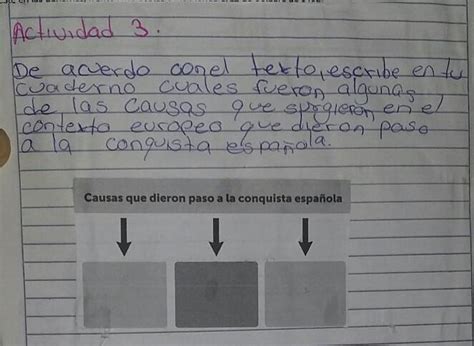 Actividad 3.
De acuerdo con el texto, escribe en tu
cuaderno cuales fueron algunas
de las causas que surgieron en el
contexto europeo que dieron paso
a la conquista española.
Causas que dieron paso a la conquista española